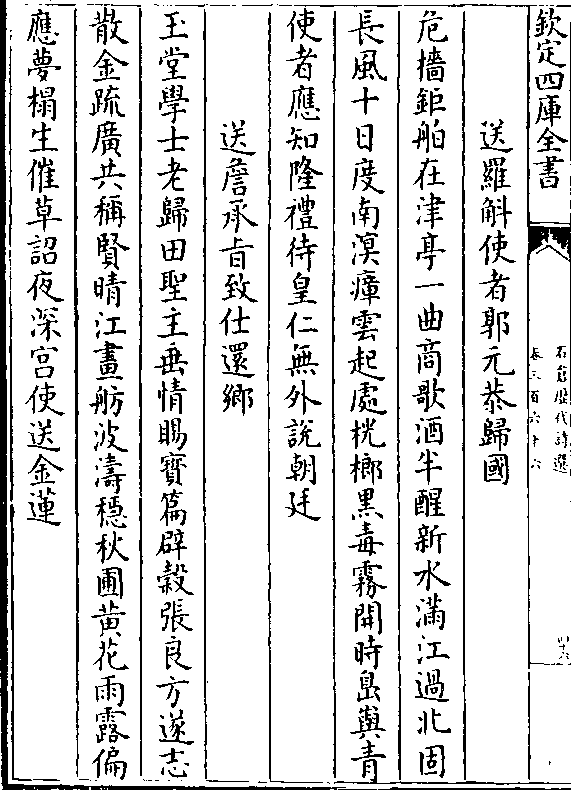 欽定四庫全書
石倉歷代詩選
卷三百六十六
送羅斛使者郭元恭歸國
危檣鉅舶在津亭一曲商歌酒半醒新水滿江過北固
長風十日度南溟瘴雲起處桄榔黑毒霧開時島嶼青
使者應知隆禮待皇仁無外說朝廷
送詹承旨致仕還鄉
玉堂學士老歸田聖主垂情賜寶篇辟穀張良方遂志
散金疏廣共稱賢晴江畫舫波濤穩秋圃黃花雨露偏
應夢榻生催草詔夜深宮使送金蓮